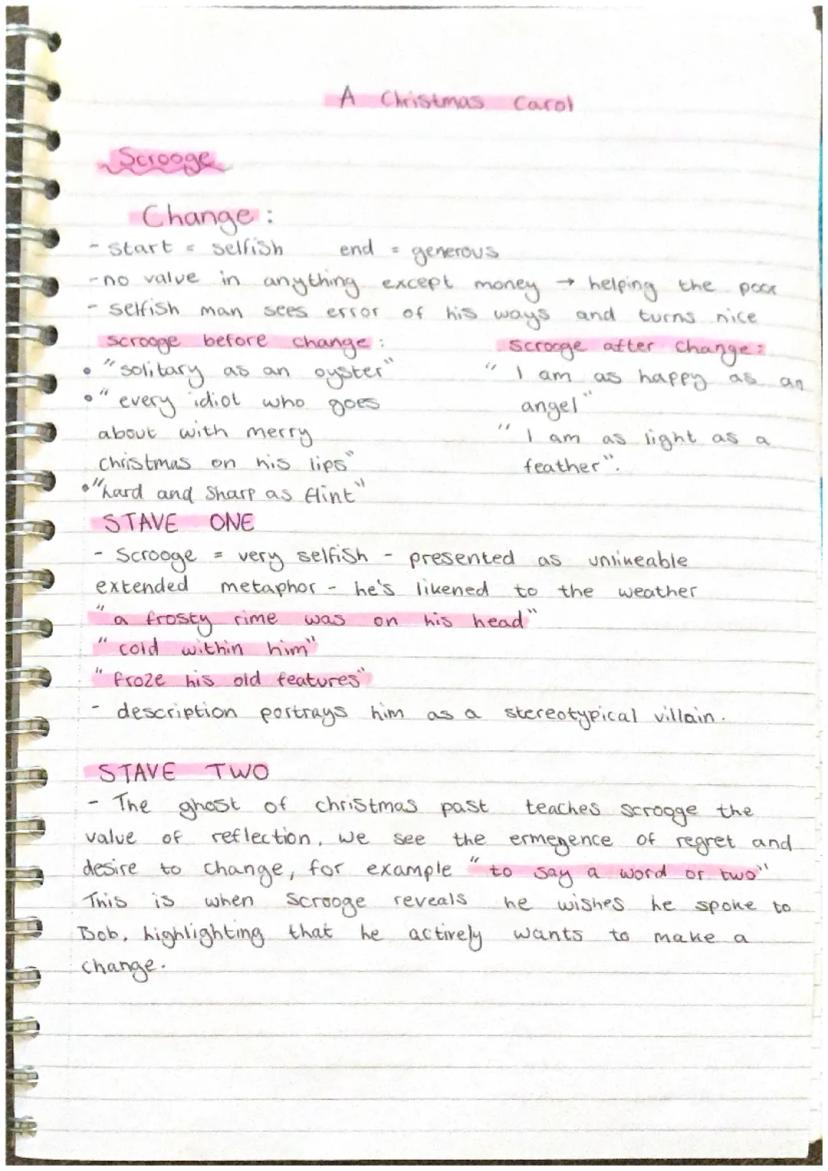 A Christmas Carol
Scrooge
Change:
- start = selfish end = generous
- no value in anything except money → helping the poor
- selfish man sees error of his ways and turns nice
scrooge before change:
• "solitary as an oyster"
• "every idiot who goes
about with merry
christmas on his lips"
• "hard and sharp as flint"
scrooge after change:
" I am as happy as an
angel"
" I am as light as a
feather".
STAVE ONE
- Scrooge = very selfish - presented as unlikeable
extended metaphor - he's likened to the weather
"a frosty rime was on his head"
"cold within him"
"froze his old features"
- description portrays him as a stereotypical villain.
STAVE TWO
- The ghost of christmas past teaches scrooge the
value of reflection, we see the ermegence of regret and
desire to change, for example "to say a word or two"
This is when Scrooge reveals he wishes he spoke to
Bob, highlighting that he actively wants to make a
change.